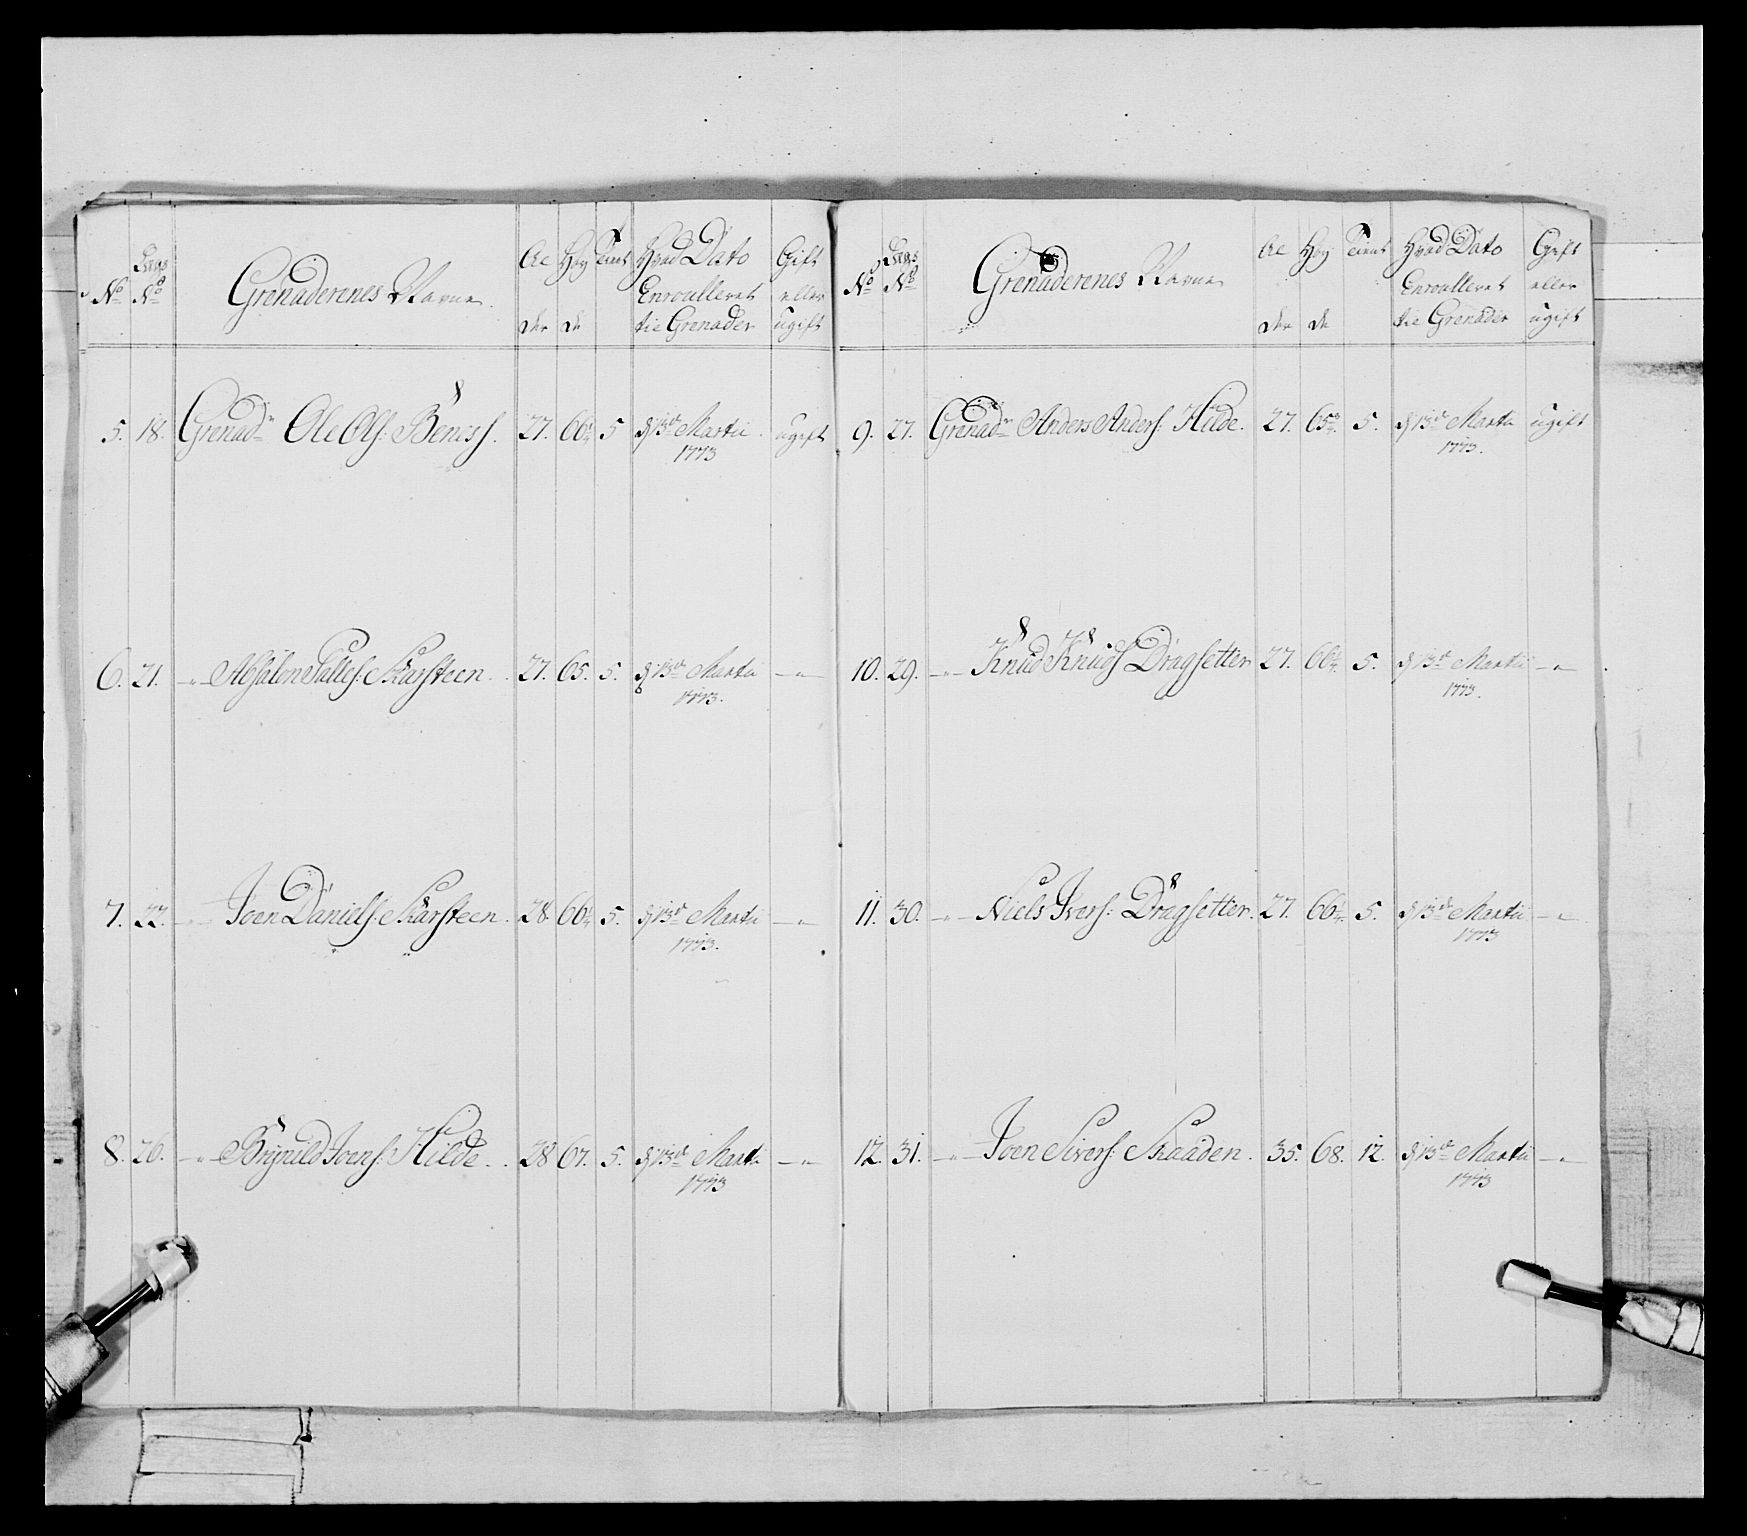 No Lægs No Grenaderenes Navne Al der Høy de Tient Hvad Dato Enroulleret tie Grenader Gift eller ugift
5. 18. Grenadr Ole Ols: Beness. 27. 66¼ 5 d 13de Martii 1773 ugift
6. 21. -"- Absalon Palles: Skarsteen. 27. 65. 5. d 13de Martii 1773. -"-
7. 22. -"- Joen Daniels: Skarsteen. 28 66¼ 5. d 13de Martii 1773. -"-
8. 26. -"- Brynild Joens: Hilde. 28 67. 5. d 13de Martii 1773 -"-
No Lægs No Grenaderenes Navne Al der Høy de Tient Hvad Dato Enroulleret tie Grenader Gift eller ugift
9. 27. Grenadr Anders Anders: Hilde. 27. 65 5. d 13de Martii 1773. ugift
10. 29. -"- Knud Knuds Dragsetter 27. 66 5. d 13de Martii 1773. -"-
11. 30. -"- Niels Ivers: Dragsetter. 27. 66 5. d 13de Martii 1773 -"-
12. 31. -"- Joen Sivers: Skaaden. 35. 68. 12. d 13de Martii 1773 -"-